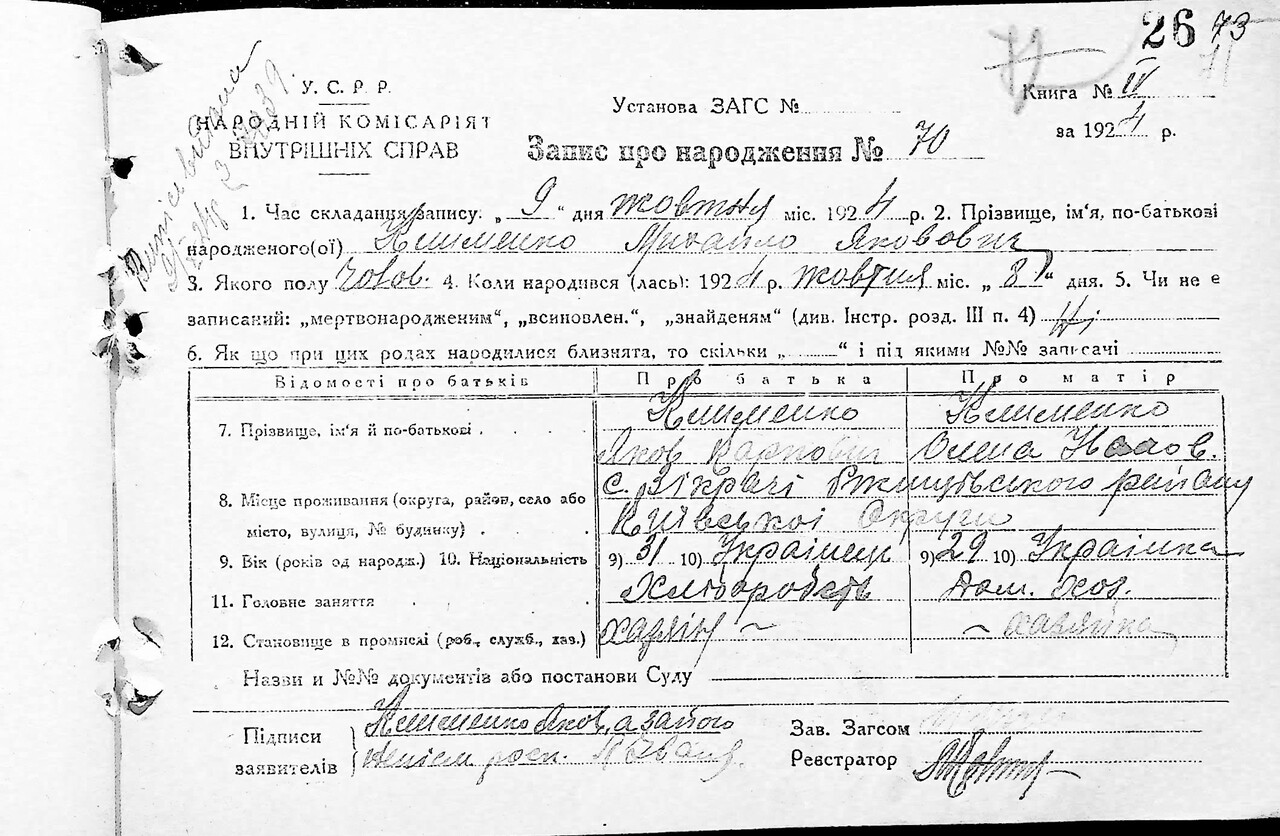 26 73
У. С. Р. Р.
НАРОДНІЙ КОМІСАРІЯТ
ВНУТРІШНІХ СПРАВ
Установа ЗАГС №
Книга № IV
за 1924 р.
Запис про народження № 70
1. Час складання запису: „ 9 “ дня жовтня міс. 1924 р. 2. Прізвище, ім'я, по-батькові
народженого(ої) Клименко Михайло Якович
3. Якого полу чолов. 4. Коли народився (лась): 1924 р. жовтня міс. „ 8 “ дня. 5. Чи не є
записаний: „мертвонародженим“, „всиновлен.“, „знайденям“ (див. Інстр. розд. III п. 4) Ні
6. Як що при цих родах народилися близнята, то скільки „ “ і під якими №№ записачі
Відомості про батьків Про батька Про матір
7. Прізвище, ім'я й по-батькові Клименко Клименко
Яков Карпович Олена
8. Місце проживання (округа, район, село або с. Зікрачі Ржищівського району
місто, вулиця, № будинку) Київської Округи
9. Вік (років од народж.) 10. Національність 9) 31 10) Українець 9) 29 10) Українка
11. Головне заняття Хліборобств Дом. хоз.
12. Становище в промислі (роб., служб., хаз.) хазяїн ~ ~ хазяйка
Назви и №№ документів або постанови Суду
Підписи Клименко Яков, а за його
заявителів росп.
Зав. Загсом
Реєстратор